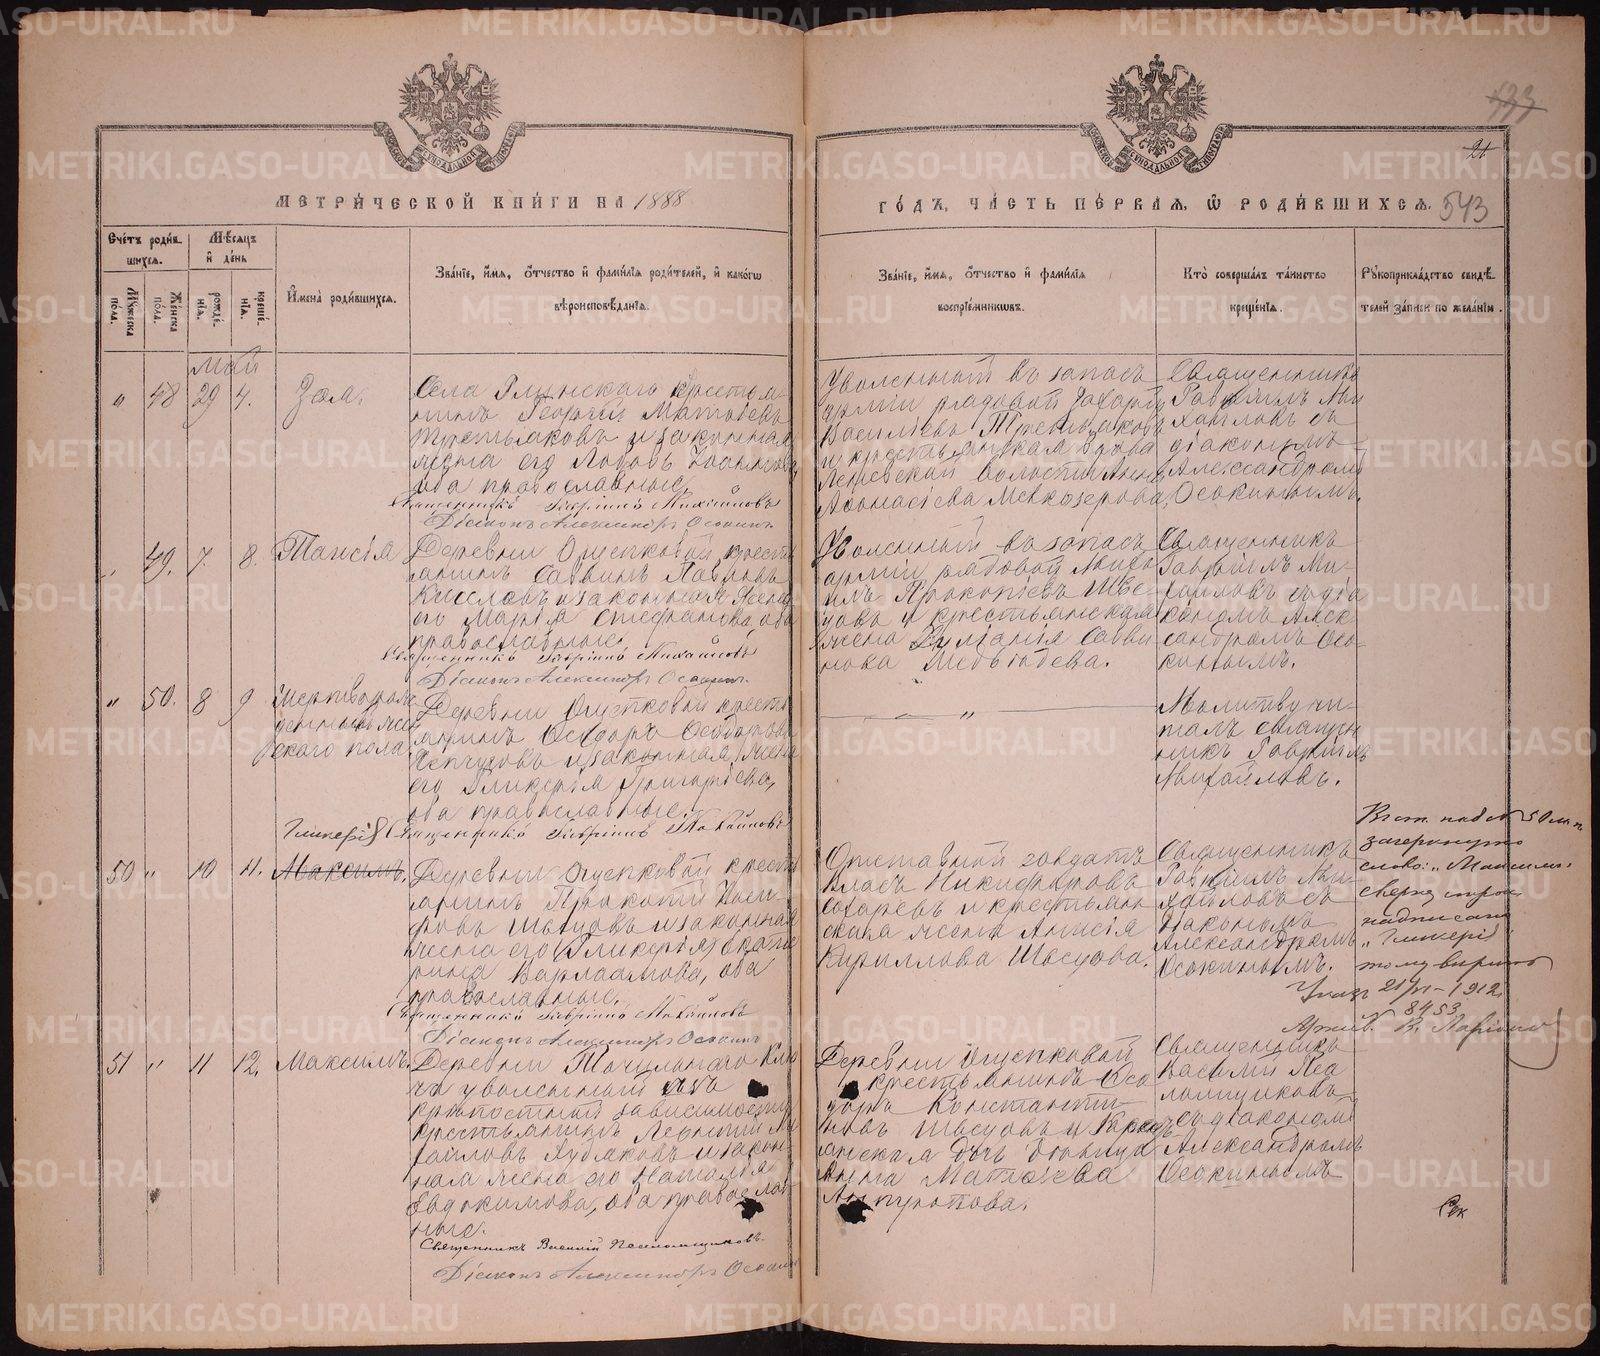 МЕТРИ́ЧЕСКОЙ КНИ́ГИ НА 1888
ГО́ДЪ, ЧА́СТЬ ПЕ́РВАѦ, Ѡ҆ РОДИ́ВШИХСѦ.
21
543
Сче́тъ роди́в
шихсѧ.
Мѣ́сѧцъ
и҆ де́нь
Му́жеска по́ла.
Же́нска по́ла.
рожде́нїѧ.
креще́нїѧ.
И҆мена̀ роди́вшихсѧ.
Зва́нїе, и҆́мѧ, ѻ҆́тчество и҆ фами́лїѧ роди́телей, и҆ како́гѡ
вѣроисповѣ́данїѧ.
Зва́нїе, и҆́мѧ, ѻ҆́тчество и҆ фами́лїѧ
воспрїе́мникѡвъ.
Кто̀ соверша́лъ та́инство
креще́нїѧ.
Рꙋкоприкла́дство свидѣ́
телей за́писи по жела́нїю.
Май
" 48 29 4. Зоя.
Села Глинскаго крестья-
нинъ Георгій Матѳеевъ
Третьяковъ и законная
жена его Любовь Іоаннова,
оба православные.
Священникъ Гавріилъ Михайловъ
Діаконъ Александръ Осокинъ.
Уволенный въ запасъ
арміи рядовой Захарій
Василіевъ Третьяковъ
и крестьянская
волости Анна
Аѳанасіева Мелкозерова.
Священникъ
Гавріилъ Ми-
хайловъ съ
діакономъ
Александромъ
Осокинымъ.
" 49. 7. 8. Таисія
Деревни Ощепковой кресть-
янинъ Саввинъ Павловъ
Киселевъ и законная жена
его Марія Стефанова, оба
православные.
Священникъ Гавріилъ Михайловъ
Діаконъ Александръ Осокинъ.
Уволенный въ запасъ
арміи рядовой Миха-
илъ Прокопіевъ Шве-
цовъ и крестьянская
жена Іуліанія Савви-
нова Медвѣдева.
Священникъ
Гавріилъ Ми-
хайловъ съ діа-
кономъ Алек-
сандромъ Осо-
кинымъ.
" 50. 8 9 Мертворож-
денный жен-
скаго пола.
Деревни Ощепковой кресть-
янинъ Ѳеодоръ Ѳеодоровъ
и законная жена
его Гликерія Григоріева,
оба православные.
Священникъ Гавріилъ Михайловъ
"
Молитву чи-
талъ священ-
никъ Гавріилъ
Михайловъ.
Гликерій
50 " 10 11. Максимъ.
Деревни Ощепковой кресть-
янинъ Прокопій Іоси-
фовъ Швецовъ и законная
жена его Екате-
рина Варлаамова, оба
православные.
Священникъ Гавріилъ Михайловъ
Діаконъ Александръ Осокинъ
Отставной солдатъ
Власъ Никифоровъ
Сохаревъ и крестьян-
ская жена Анисія
Кириллова Швецова.
Священникъ
Гавріилъ Ми-
хайловъ съ
діакономъ
Александромъ
Осокинымъ.
зачеркнуто
слово: "Максимъ"
сверху строки
надписано
"Гликерій"
тому вѣрить
Указъ 21/VI – 1912
8453
Архив. В. Ларіоновъ
51 " 11 12. Максимъ.
Деревни Точильнаго Клю-
ча уволенный изъ
крѣпостной зависимости
крестьянинъ Леонтій Ми-
хайловъ и закон-
ная жена его Наталія
Евдокимова, оба православ-
ные.
Священникъ Василій Паломщиковъ.
Діаконъ Александръ Осокинъ
Деревни Ощепковой
крестьянинъ Ѳео-
доръ Константи-
новъ Швецовъ и
дочь дѣвица
Анна Матѳеева
Священникъ
Василій Па-
ломщиковъ
съ діакономъ
Александромъ
Осокинымъ
METRIKI.GASO-URAL.RU